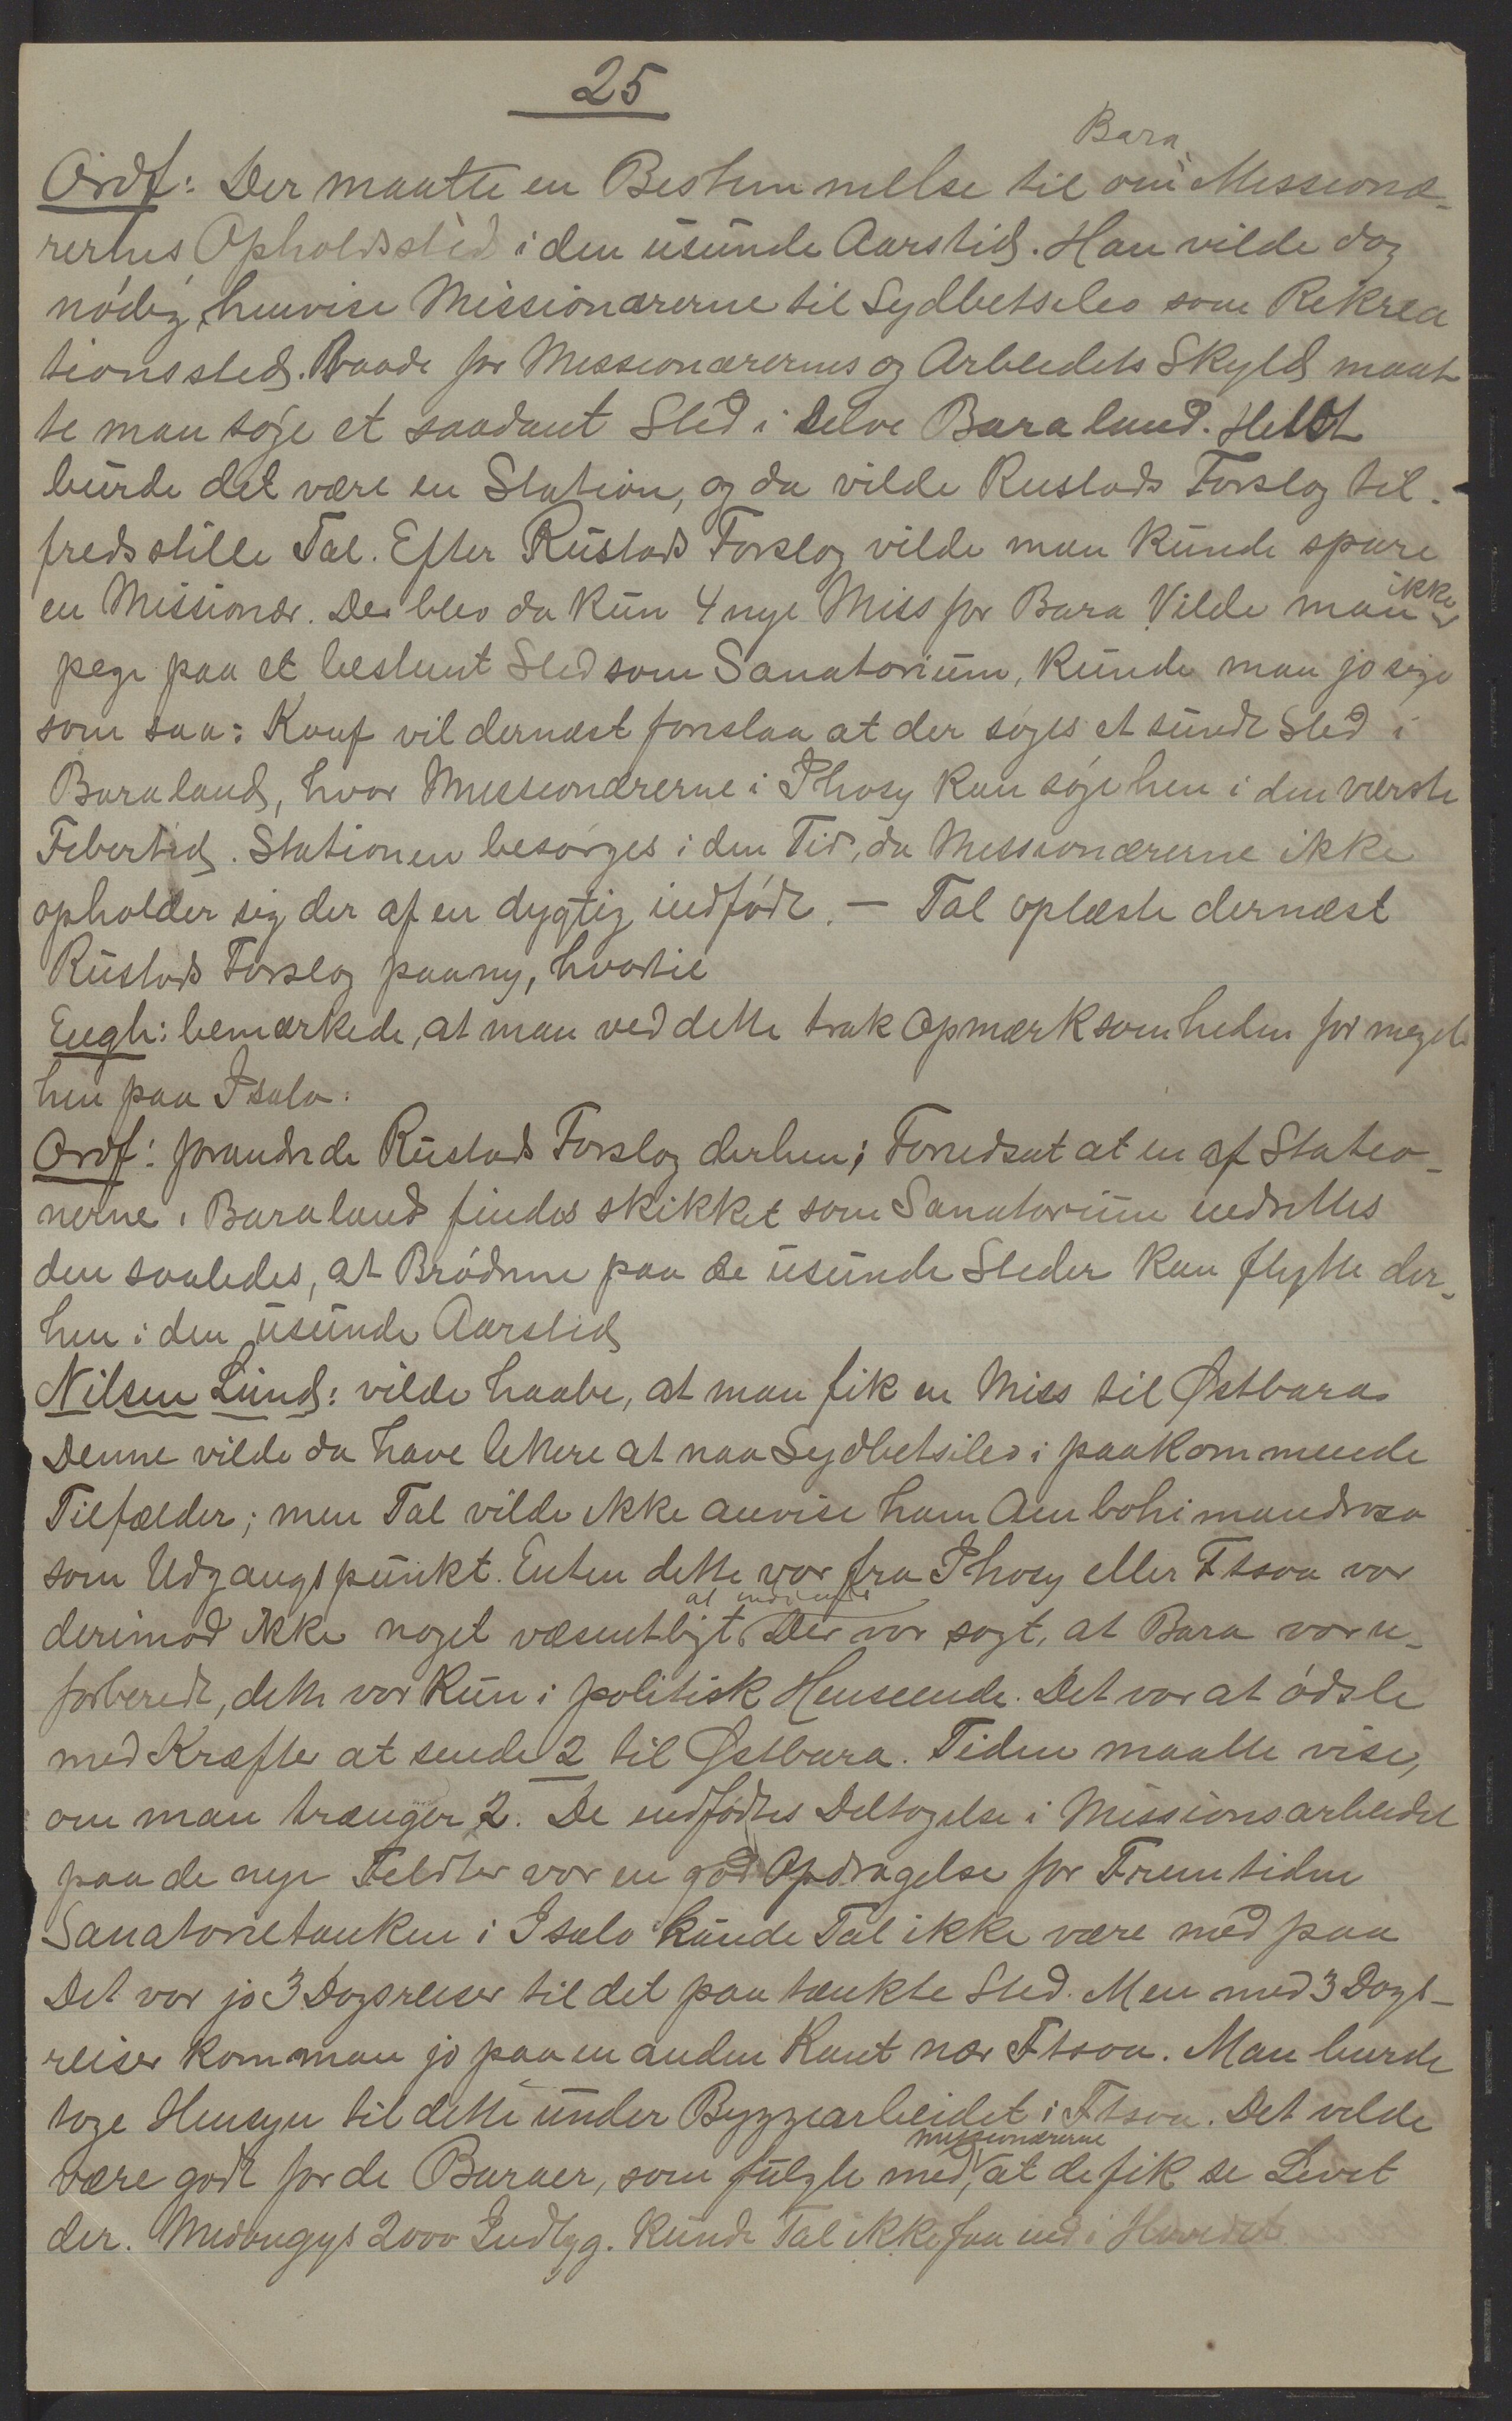 25
Bara
Ordf: Der maatte en Bestemmelse til om Missionæ-
rernes Opholdssted i den usunde Aarstid. Han vilde dog
nødig henvise Missionærerne til Sydbetsileo som Rekrea
tionssted. Baade for Missionærernes og Arbeidets Skyld maat
te man søge et saadant Sted i selve Baraland. Helst
burde det være en Station, og da vilde Rustads Forslag til-
fredsstille Tal. Efter Rustads Forslag vilde man kunde spare
en Missionær. Der blev da kun 4 nye Miss for Bara. Vilde man ikke
pege paa et bestemt Sted som Sanatorium, kunde man jo sige
som saa: Konf vil dernæst foreslaa at der søges et sundt Sted i
Baraland, hvor Missionærerne i Ihosy kan søge hen i den værste
Febertid. Stationen besørges i den Tid, da Missionærerne ikke
opholder sig der af en dygtig indfødt. — Tal oplæste dernæst
Rustads Forslag paany, hvortil
Engh: bemærkede, at man ved dette trak Opmærksomheden for meget
hen paa Isalo.
Ordf: forandrede Rustads Forslag derhen; Forudsat at en af Statio-
nerne i Baraland findes skikket som Sanatorium indrettes
den saaledes, at Brødrene paa de usunde Steder kan flytte der-
hen i den usunde Aarstid
Nilsen Lund: vilde haabe, at man fik en Miss til Østbara.
Denne vilde da have lettere at naa Sydbetsileo i paakommende
Tilfælder; men Tal vilde ikke anvise ham Ambohimandroso
som Udgangspunkt. Enten dette var fra Ihosy eller Ftsoa var
derimod ikke noget væsentligt. Der var sagt, at Bara var u-
forberedt, dette var kun i politisk Henseende. Det var at ødsle
med Kræfter at sende 2 til Østbara. Tiden maatte vise,
om man trænger 2. De indfødtes Deltagelse i Missionsarbeidet
paa de nye Feldter var en god Opdragelse for Fremtiden
Sanatorietanken i Isalo kunde Tal ikke være med paa
Det var jo 3 Dagsreiser til det paatænkte Sted. Men med 3 Dags-
reiser kom man jo paa en anden Kant nær Ftsoa. Man burde
tage Hensyn til dette under Byggearbeidet i Ftsoa. Det vilde
missionærerne
være godt for de Baraer, som fulgte med, at de fik se Livet
der. Midongys 2000 Indbyg. kunde Tal ikke faa ind i Hovedet